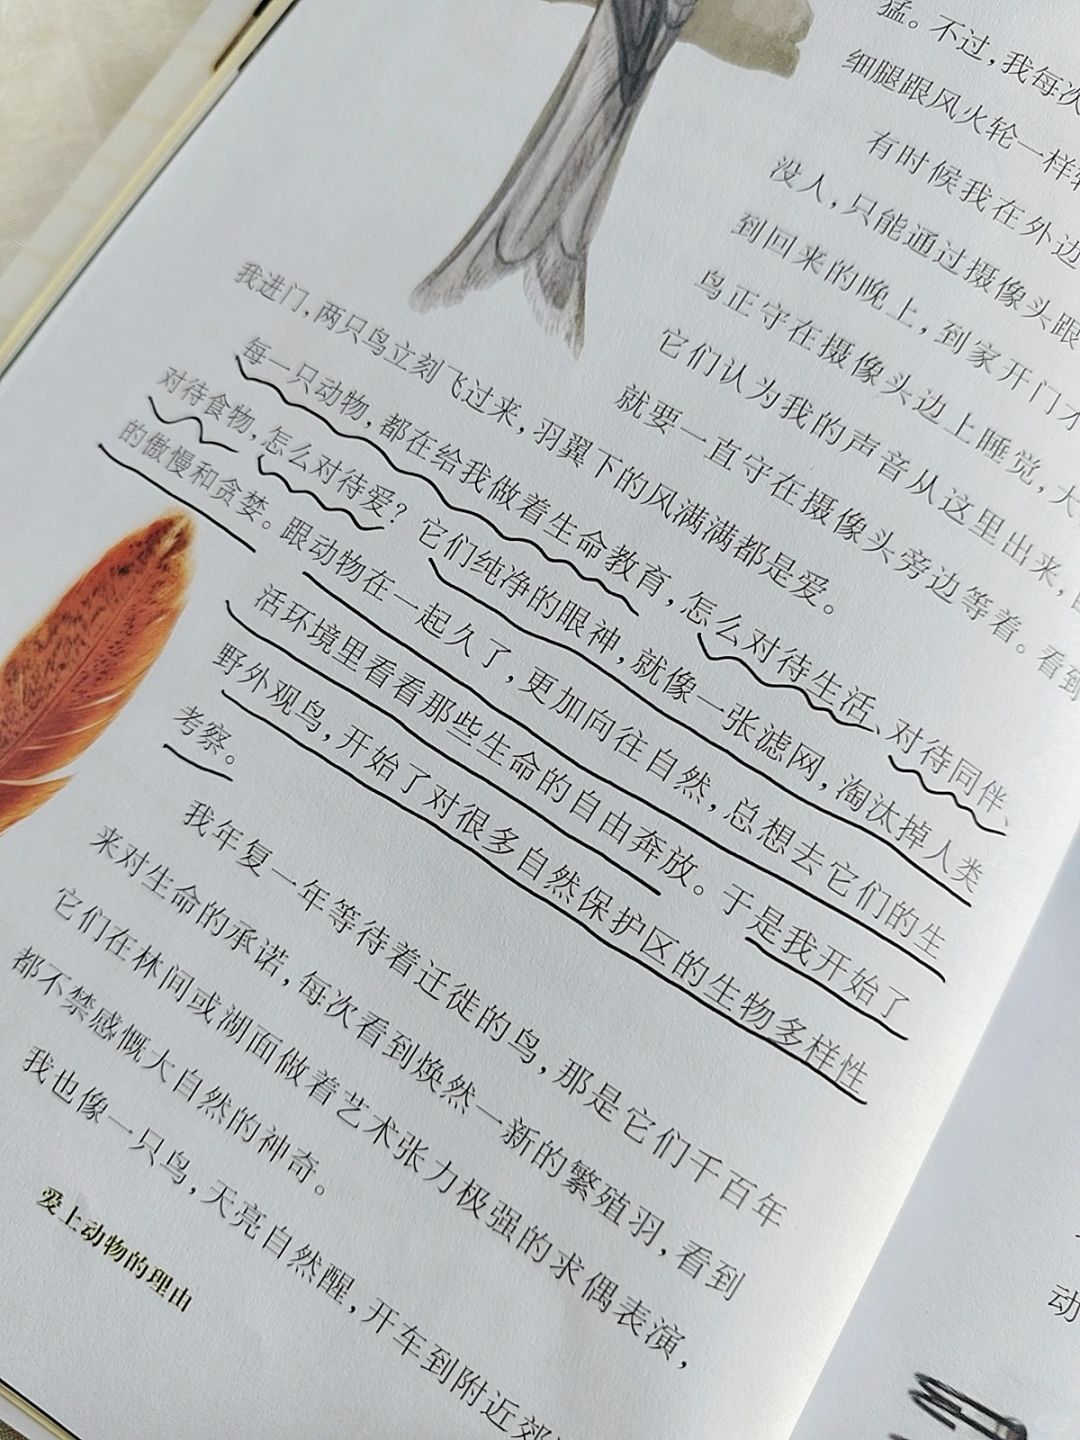 猛。不过,我每次
细腿跟风火轮一样
有时候我在外边
没人,只能通过摄像头跟
到回来的晚上,到家开门才
鸟正守在摄像头边上睡觉,大
它们认为我的声音从这里出来,
就要一直守在摄像头旁边等着。看到
我进门,两只鸟立刻飞过来,羽翼下的风满满都是爱。
每一只动物,都在给我做着生命教育,怎么对待生活、对待同伴、
对待食物,怎么对待爱?它们纯净的眼神,就像一张滤网,淘汰掉人类
的傲慢和贪婪。跟动物在一起久了,更加向往自然,总想去它们的生
活环境里看看那些生命的自由奔放。于是我开始了
野外观鸟,开始了对很多自然保护区的生物多样性
考察。
我年复一年等待着迁徙的鸟,那是它们千百年
来对生命的承诺,每次看到焕然一新的繁殖羽,看到
它们在林间或湖面做着艺术张力极强的求偶表演,
都不禁感慨大自然的神奇。
我也像一只鸟,天亮自然醒,开车到附近郊
爱上动物的理由
动